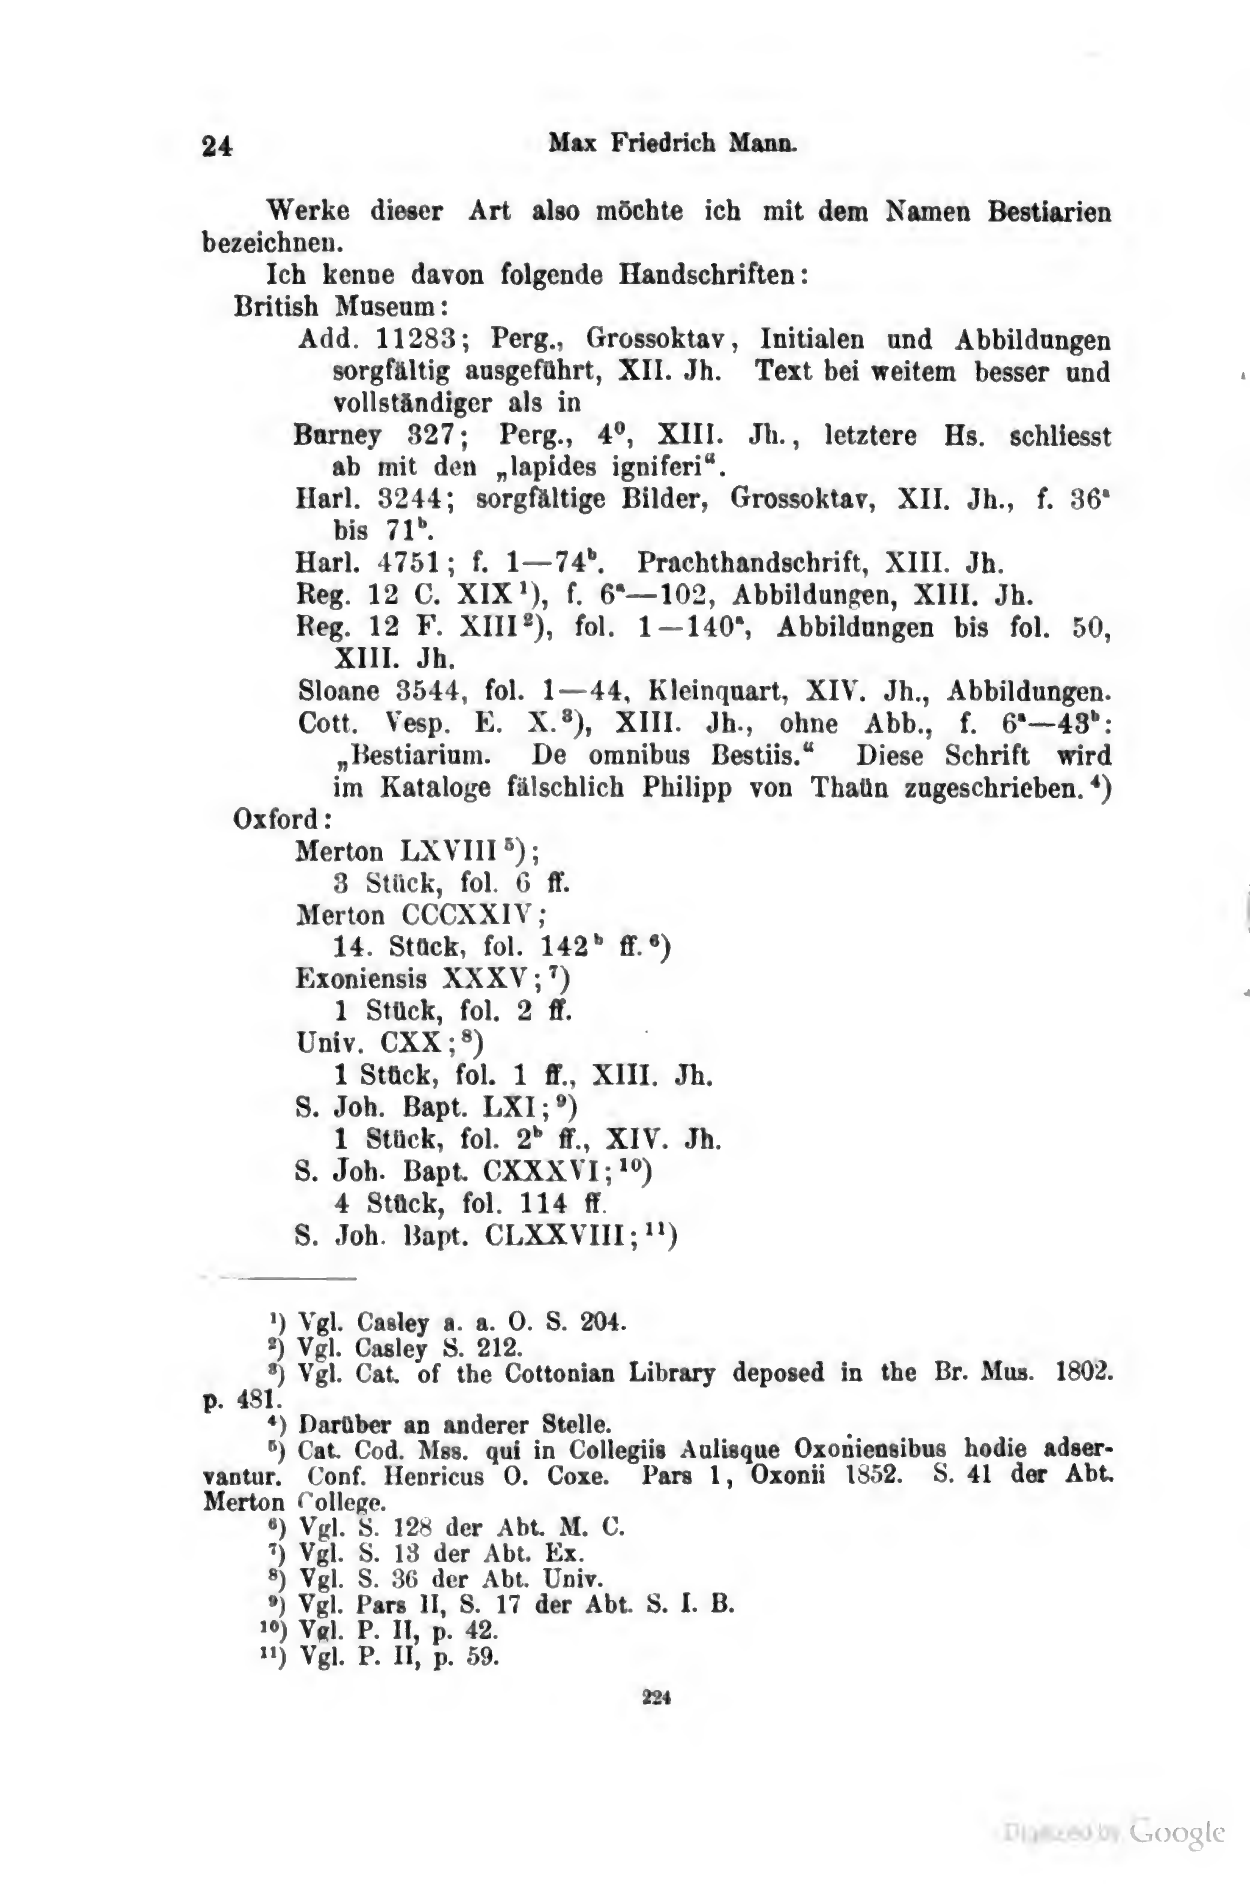 24 Max Friedrich Mann.
Werke dieser Art also möchte ich mit dem Namen Bestiarien
bezeichnen.
Ich kenne davon folgende Handschriften:
British Museum:
Add. 11283; Perg., Grossoktav, Initialen und Abbildungen
sorgfältig ausgeführt, XII. Jh. Text bei weitem besser und
vollständiger als in
Burney 327; Perg., 4⁰, XIII. Jh., letztere Hs. schliesst
ab mit den „lapides igniferi“.
Harl. 3244; sorgfältige Bilder, Grossoktav, XII. Jh., f. 36ᵃ
bis 71ᵇ.
Harl. 4751; f. 1—74ᵇ. Prachthandschrift, XIII. Jh.
Reg. 12 C. XIX¹), f. 6ᵃ—102, Abbildungen, XIII. Jh.
Reg. 12 F. XIII²), fol. 1—140ᵃ, Abbildungen bis fol. 50,
XIII. Jh.
Sloane 3544, fol. 1—44, Kleinquart, XIV. Jh., Abbildungen.
Cott. Vesp. E. X.³), XIII. Jh., ohne Abb., f. 6ᵃ—43ᵇ:
„Bestiarium. De omnibus Bestiis.“ Diese Schrift wird
im Kataloge fälschlich Philipp von Thaün zugeschrieben.⁴)
Oxford:
Merton LXVIII⁵);
3 Stück, fol. 6 ff.
Merton CCCXXIV;
14. Stück, fol. 142ᵇ ff.⁶)
Exoniensis XXXV;⁷)
1 Stück, fol. 2 ff.
Univ. CXX;⁸)
1 Stück, fol. 1 ff., XIII. Jh.
S. Joh. Bapt. LXI;⁹)
1 Stück, fol. 2ᵇ ff., XIV. Jh.
S. Joh. Bapt. CXXXVI;¹⁰)
4 Stück, fol. 114 ff.
S. Joh. Bapt. CLXXVIII;¹¹)
¹) Vgl. Casley a. a. O. S. 204.
²) Vgl. Casley S. 212.
³) Vgl. Cat. of the Cottonian Library deposed in the Br. Mus. 1802.
p. 481.
⁴) Darüber an anderer Stelle.
⁵) Cat. Cod. Mss. qui in Collegiis Aulisque Oxoniensibus hodie adser-
vantur. Conf. Henricus O. Coxe. Pars 1, Oxonii 1852. S. 41 der Abt.
Merton College.
⁶) Vgl. S. 128 der Abt. M. C.
⁷) Vgl. S. 13 der Abt. Ex.
⁸) Vgl. S. 36 der Abt. Univ.
⁹) Vgl. Pars II, S. 17 der Abt. S. I. B.
¹⁰) Vgl. P. II, p. 42.
¹¹) Vgl. P. II, p. 59.
224
Digitized by Google